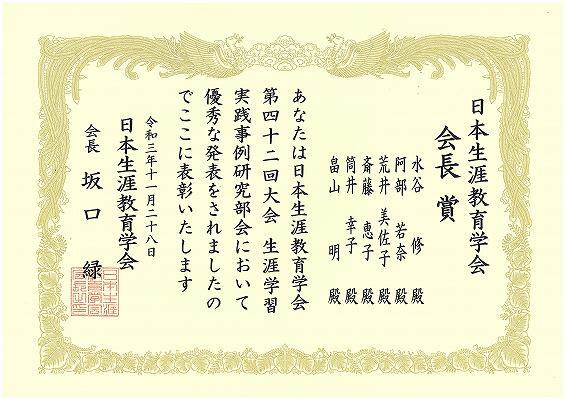 日本生涯教育学会
会長賞
水谷 修 殿
阿部 若奈 殿
荒井 美佐子 殿
斎藤 恵子 殿
筒井 幸子 殿
畠山 明 殿
あなたは日本生涯教育学会
第四十二回大会 生涯学習
実践事例研究部会において
優秀な発表をされましたの
でここに表彰いたします
令和三年十一月二十八日
日本生涯教育学会
会長 坂口 緑